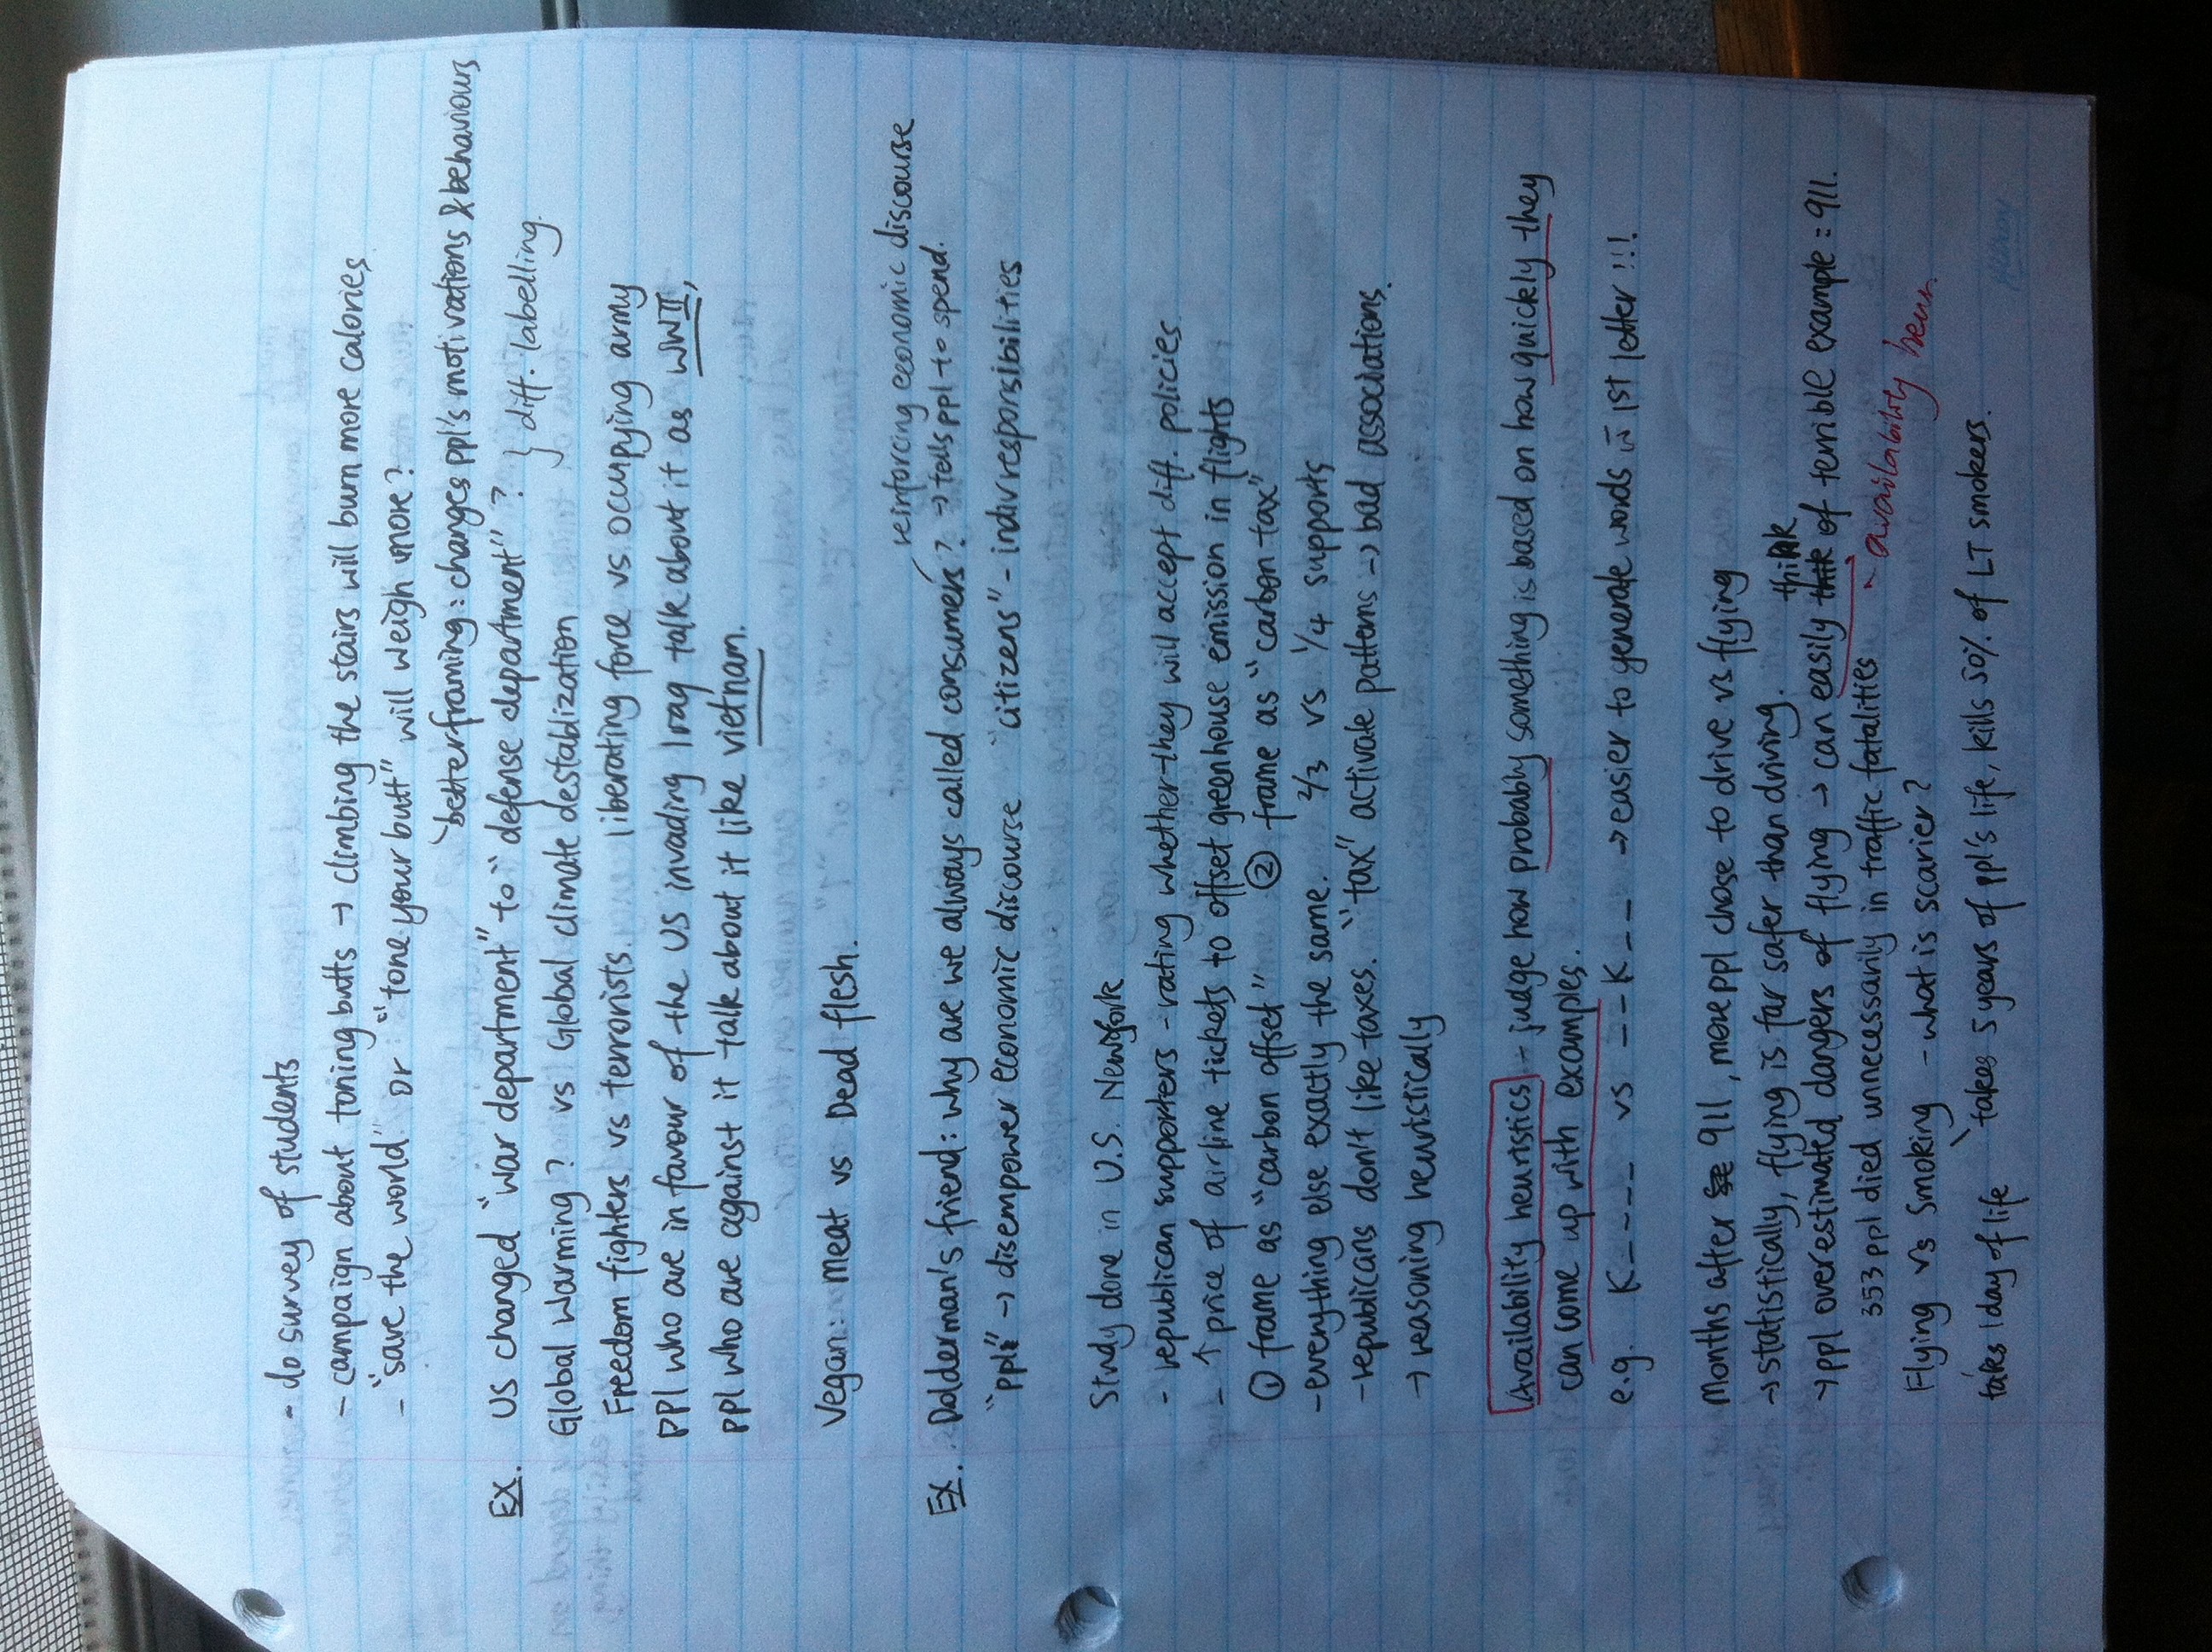 - do survey of students
- campaign about toning butts → climbing the stairs will burn more calories
- "save the world" or "tone your butt" will weigh more?
better framing: changes ppl's motivations & behaviours
EX. US changed "war department" to "defense department"? } diff. labelling.
Global Warming? vs Global climate destablization
Freedom fighters vs terrorists. liberating force vs occupying army
ppl who are in favour of the US invading Iraq talk about it as WWII,
ppl who are against it talk about it like vietnam.
Vegan: meat vs Dead flesh.
reinforcing economic discourse
EX. Dolderman's friend: why are we always called consumers? → tells ppl to spend.
"ppl" → disempower economic discourse "citizens" - indiv responsibilities
Study done in U.S. New York
- republican supporters - rating whether they will accept diff. policies
- ↑ price of airline tickets to offset greenhouse emission in flights
① frame as "carbon offset" ② frame as "carbon tax"
- everything else exactly the same. 2/3 vs 1/4 supports
- republicans don't like taxes. "tax" activate patterns → bad associations.
→ reasoning heuristically
Availability heuristics - judge how probably something is based on how quickly they
can come up with examples.
e.g. K---- vs --K-- → easier to generate words w̄ 1st letter!!!
Months after 911, more ppl chose to drive vs flying
→ statistically, flying is far safer than driving. think
→ ppl overestimated dangers of flying → can easily of terrible example: 911.
353 ppl died unnecessarily in traffic fatalities - availability heur.
Flying vs Smoking - what is scarier?
takes 1 day of life takes 5 years of ppl's life, kills 50% of LT smokers.